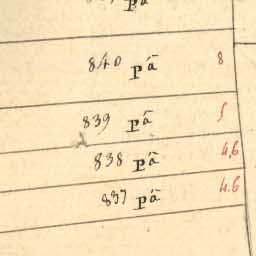 840 pā 8
839 pā 5
838 pā 4,6
837 pā 4.6